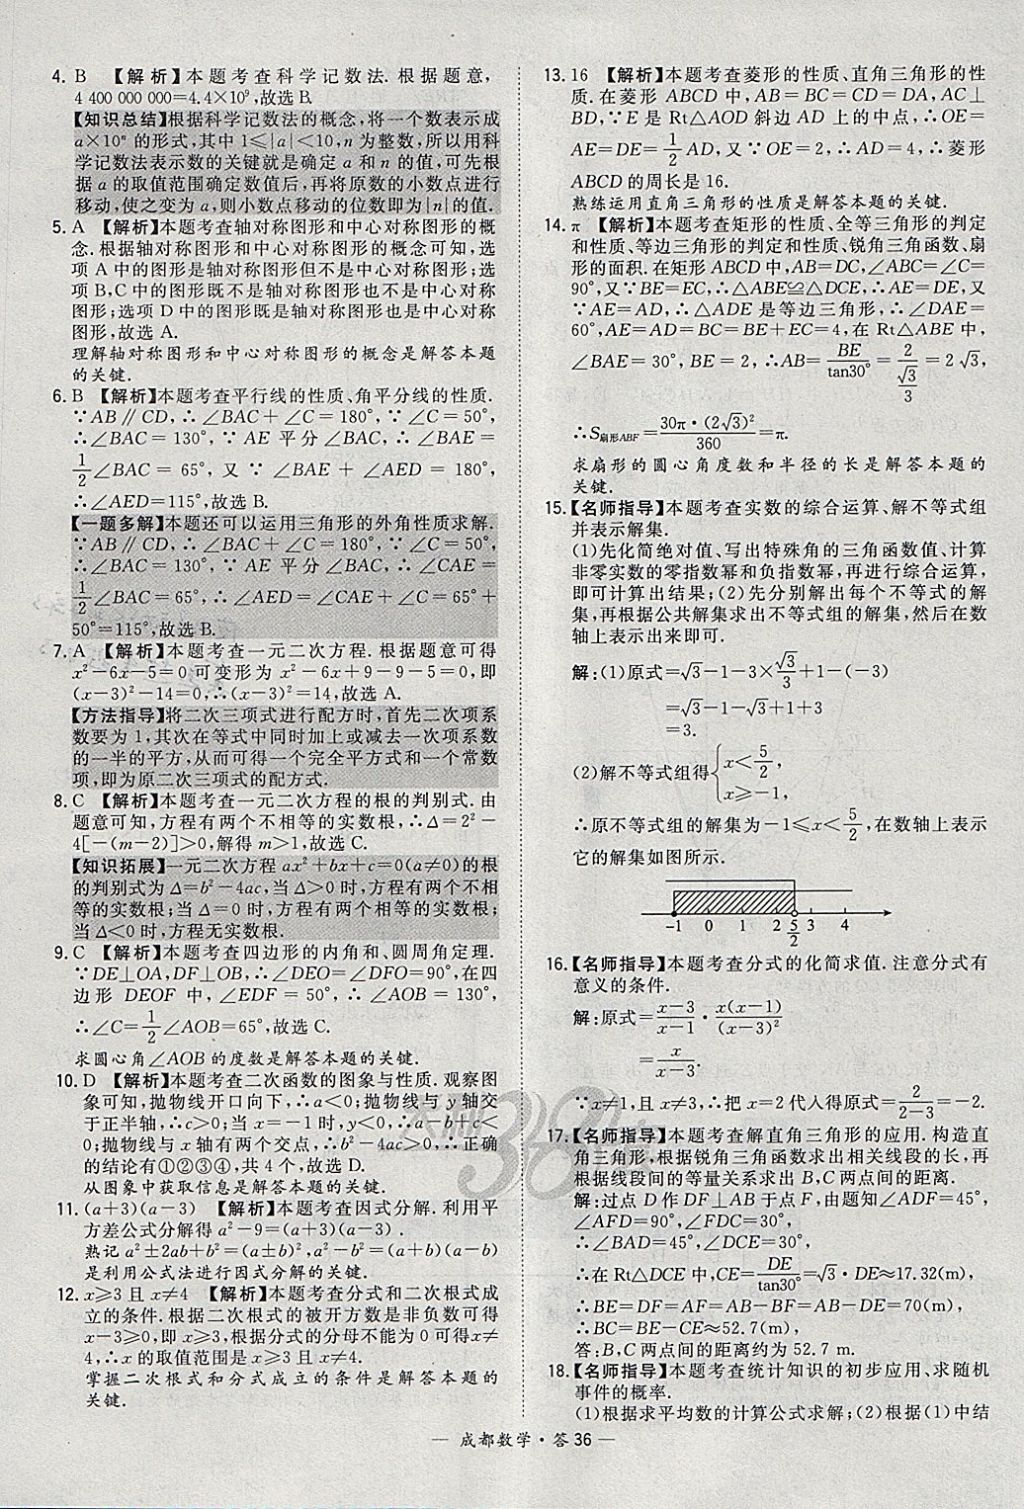 4. B 【解析】本题考查科学记数法. 根据题意,
4 400 000 000=4.4×10⁹,故选 B.
【知识总结】根据科学记数法的概念,将一个数表示成
a×10ⁿ 的形式,其中 1≤|a|<10,n 为整数,所以用科
学记数法表示数的关键就是确定 a 和 n 的值,可先根
据 a 的取值范围确定数值后,再将原数的小数点进行
移动,使之变为 a,则小数点移动的位数即为|n|的值.
5. A 【解析】本题考查轴对称图形和中心对称图形的概
念. 根据轴对称图形和中心对称图形的概念可知,选
项 A 中的图形是轴对称图形但不是中心对称图形;选
项 B,C 中的图形既不是轴对称图形也不是中心对称
图形;选项 D 中的图形既是轴对称图形也是中心对称
图形,故选 A.
理解轴对称图形和中心对称图形的概念是解答本题
的关键.
6. B 【解析】本题考查平行线的性质、角平分线的性质.
∵AB∥CD,∴∠BAC+∠C=180°,∵∠C=50°,
∴∠BAC=130°,∵AE 平分∠BAC,∴∠BAE=
1/2∠BAC=65°,又∵∠BAE+∠AED=180°,
∴∠AED=115°,故选 B.
【一题多解】本题还可以运用三角形的外角性质求解.
∵AB∥CD,∴∠BAC+∠C=180°,∵∠C=50°,
∴∠BAC=130°,∵AE 平分∠BAC,∴∠CAE=
1/2∠BAC=65°,∴∠AED=∠CAE+∠C=65°+
50°=115°,故选 B.
7. A 【解析】本题考查一元二次方程. 根据题意可得
x²-6x-5=0 可变形为 x²-6x+9-9-5=0,即
(x-3)²-14=0,∴(x-3)²=14,故选 A.
【方法指导】将二次三项式进行配方时,首先二次项系
数要为 1,其次在等式中同时加上或减去一次项系数
的一半的平方,从而可得一个完全平方式和一个常数
项,即为原二次三项式的配方式.
8. C 【解析】本题考查一元二次方程的根的判别式. 由
题意可知,方程有两个不相等的实数根,∴Δ=2²-
4[-(m-2)]>0,解得 m>1,故选 C.
【知识拓展】一元二次方程 ax²+bx+c=0(a≠0)的根
的判别式为 Δ=b²-4ac,当 Δ>0 时,方程有两个不相
等的实数根;当 Δ=0 时,方程有两个相等的实数根;
当 Δ<0 时,方程无实数根.
9. C 【解析】本题考查四边形的内角和、圆周角定理.
∵DE⊥OA,DF⊥OB,∴∠DEO=∠DFO=90°,在四
边形 DEOF 中,∠EDF=50°,∴∠AOB=130°,
∴∠C=1/2∠AOB=65°,故选 C.
求圆心角∠AOB 的度数是解答本题的关键.
10. D 【解析】本题考查二次函数的图象与性质. 观察图
象可知,抛物线开口向下,∴a<0;抛物线与 y 轴交
于正半轴,∴c>0;当 x=-1 时,y<0,∴a-b+c<
0;抛物线与 x 轴有两个交点,∴b²-4ac>0,∴正确
的结论有①②③④,共 4 个,故选 D.
从图象中获取信息是解答本题的关键.
11. (a+3)(a-3) 【解析】本题考查因式分解. 利用平
方差公式分解得 a²-9=(a+3)(a-3).
熟记 a²±2ab+b²=(a±b)²,a²-b²=(a+b)(a-b)
是利用公式法进行因式分解的关键.
12. x≥3 且 x≠4 【解析】本题考查分式和二次根式成
立的条件. 根据二次根式的被开方数是非负数可得
x-3≥0,即 x≥3,根据分式的分母不能为 0 可得 x≠
4,∴x 的取值范围是 x≥3 且 x≠4.
掌握二次根式和分式成立的条件是解答本题的
关键.
13. 16 【解析】本题考查菱形的性质、直角三角形的性
质. 在菱形 ABCD 中,AB=BC=CD=DA,AC⊥
BD,∵E 是 Rt△AOD 斜边 AD 上的中点,∴OE=
AE=DE=1/2 AD,又∵OE=2,∴AD=4,∴菱形
ABCD 的周长是 16.
熟练运用直角三角形的性质是解答本题的关键.
14. π 【解析】本题考查矩形的性质、全等三角形的判定
和性质、等边三角形的判定和性质、锐角三角函数、扇
形的面积. 在矩形 ABCD 中,AB=DC,∠ABC=∠C=
90°,又∵BE=EC,∴△ABE≌△DCE,∴AE=DE,又
∵AE=AD,∴△ADE 是等边三角形,∴∠DAE=
60°,AE=AD=BC=BE+EC=4,在 Rt△ABE 中,
∠BAE=30°,BE=2,∴AB=BE/tan30°=2/(√3/3)=2√3,
∴S扇形ABF=30π·(2√3)²/360=π.
求扇形的圆心角度数和半径的长是解答本题的
关键.
15. 【名师指导】本题考查实数的综合运算、解不等式组
并表示解集.
(1)先化简绝对值、写出特殊角的三角函数值、计算
非零实数的零指数幂和负指数幂,再进行综合运算,
即可计算出结果;(2)先分别解出每个不等式的解
集,再根据公共解集求出不等式组的解集,然后在数
轴上表示出来即可.
解:(1)原式=√3-1-3×√3/3+1-(-3)
=√3-1-√3+1+3
=3.
(2)解不等式组得{x<5/2,
x≥-1,
∴原不等式组的解集为-1≤x<5/2,在数轴上表示
它的解集如图所示.
-1 0 1 2 5/2 3 4
16. 【名师指导】本题考查分式的化简求值. 注意分式有
意义的条件.
解:原式=(x-3)/(x-1)·x(x-1)/(x-3)²
=x/(x-3).
∵x≠1,且 x≠3,∴把 x=2 代入得原式=2/(2-3)=-2.
17. 【名师指导】本题考查解直角三角形的应用. 构造直
角三角形,根据锐角三角函数求出相关线段的长,再
根据线段间的等量关系求出 B,C 两点间的距离.
解:过点 D 作 DF⊥AB 于点 F,由题知∠ADF=45°,
∠AFD=90°,∠FDC=30°,
∴∠BAD=45°,∠DCE=30°,
∴在 Rt△DCE 中,CE=DE/tan30°=√3·DE≈17.32(m),
∴BE=DF=AF=AB-BF=AB-DE=70(m),
∴BC=BE-CE≈52.7(m),
答:B,C 两点间的距离约为 52.7 m.
18. 【名师指导】本题考查统计知识的初步应用、求随机
事件的概率.
(1)根据求平均数的计算公式求解;(2)根据(1)中结
— 成都数学·答 36 —